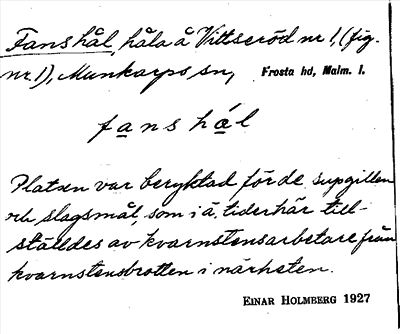 Fans hål, håla å Vittseröd nr 1, (fig.
nr 1), Munkarps sn, Frosta hd, Malm. l.
fans hål
Platsen var beryktad för de supgillen
och slagsmål, som i ä. tider här till-
ställdes av kvarnstensarbetare från
kvarnstensbrotten i närheten.
EINAR HOLMBERG 1927